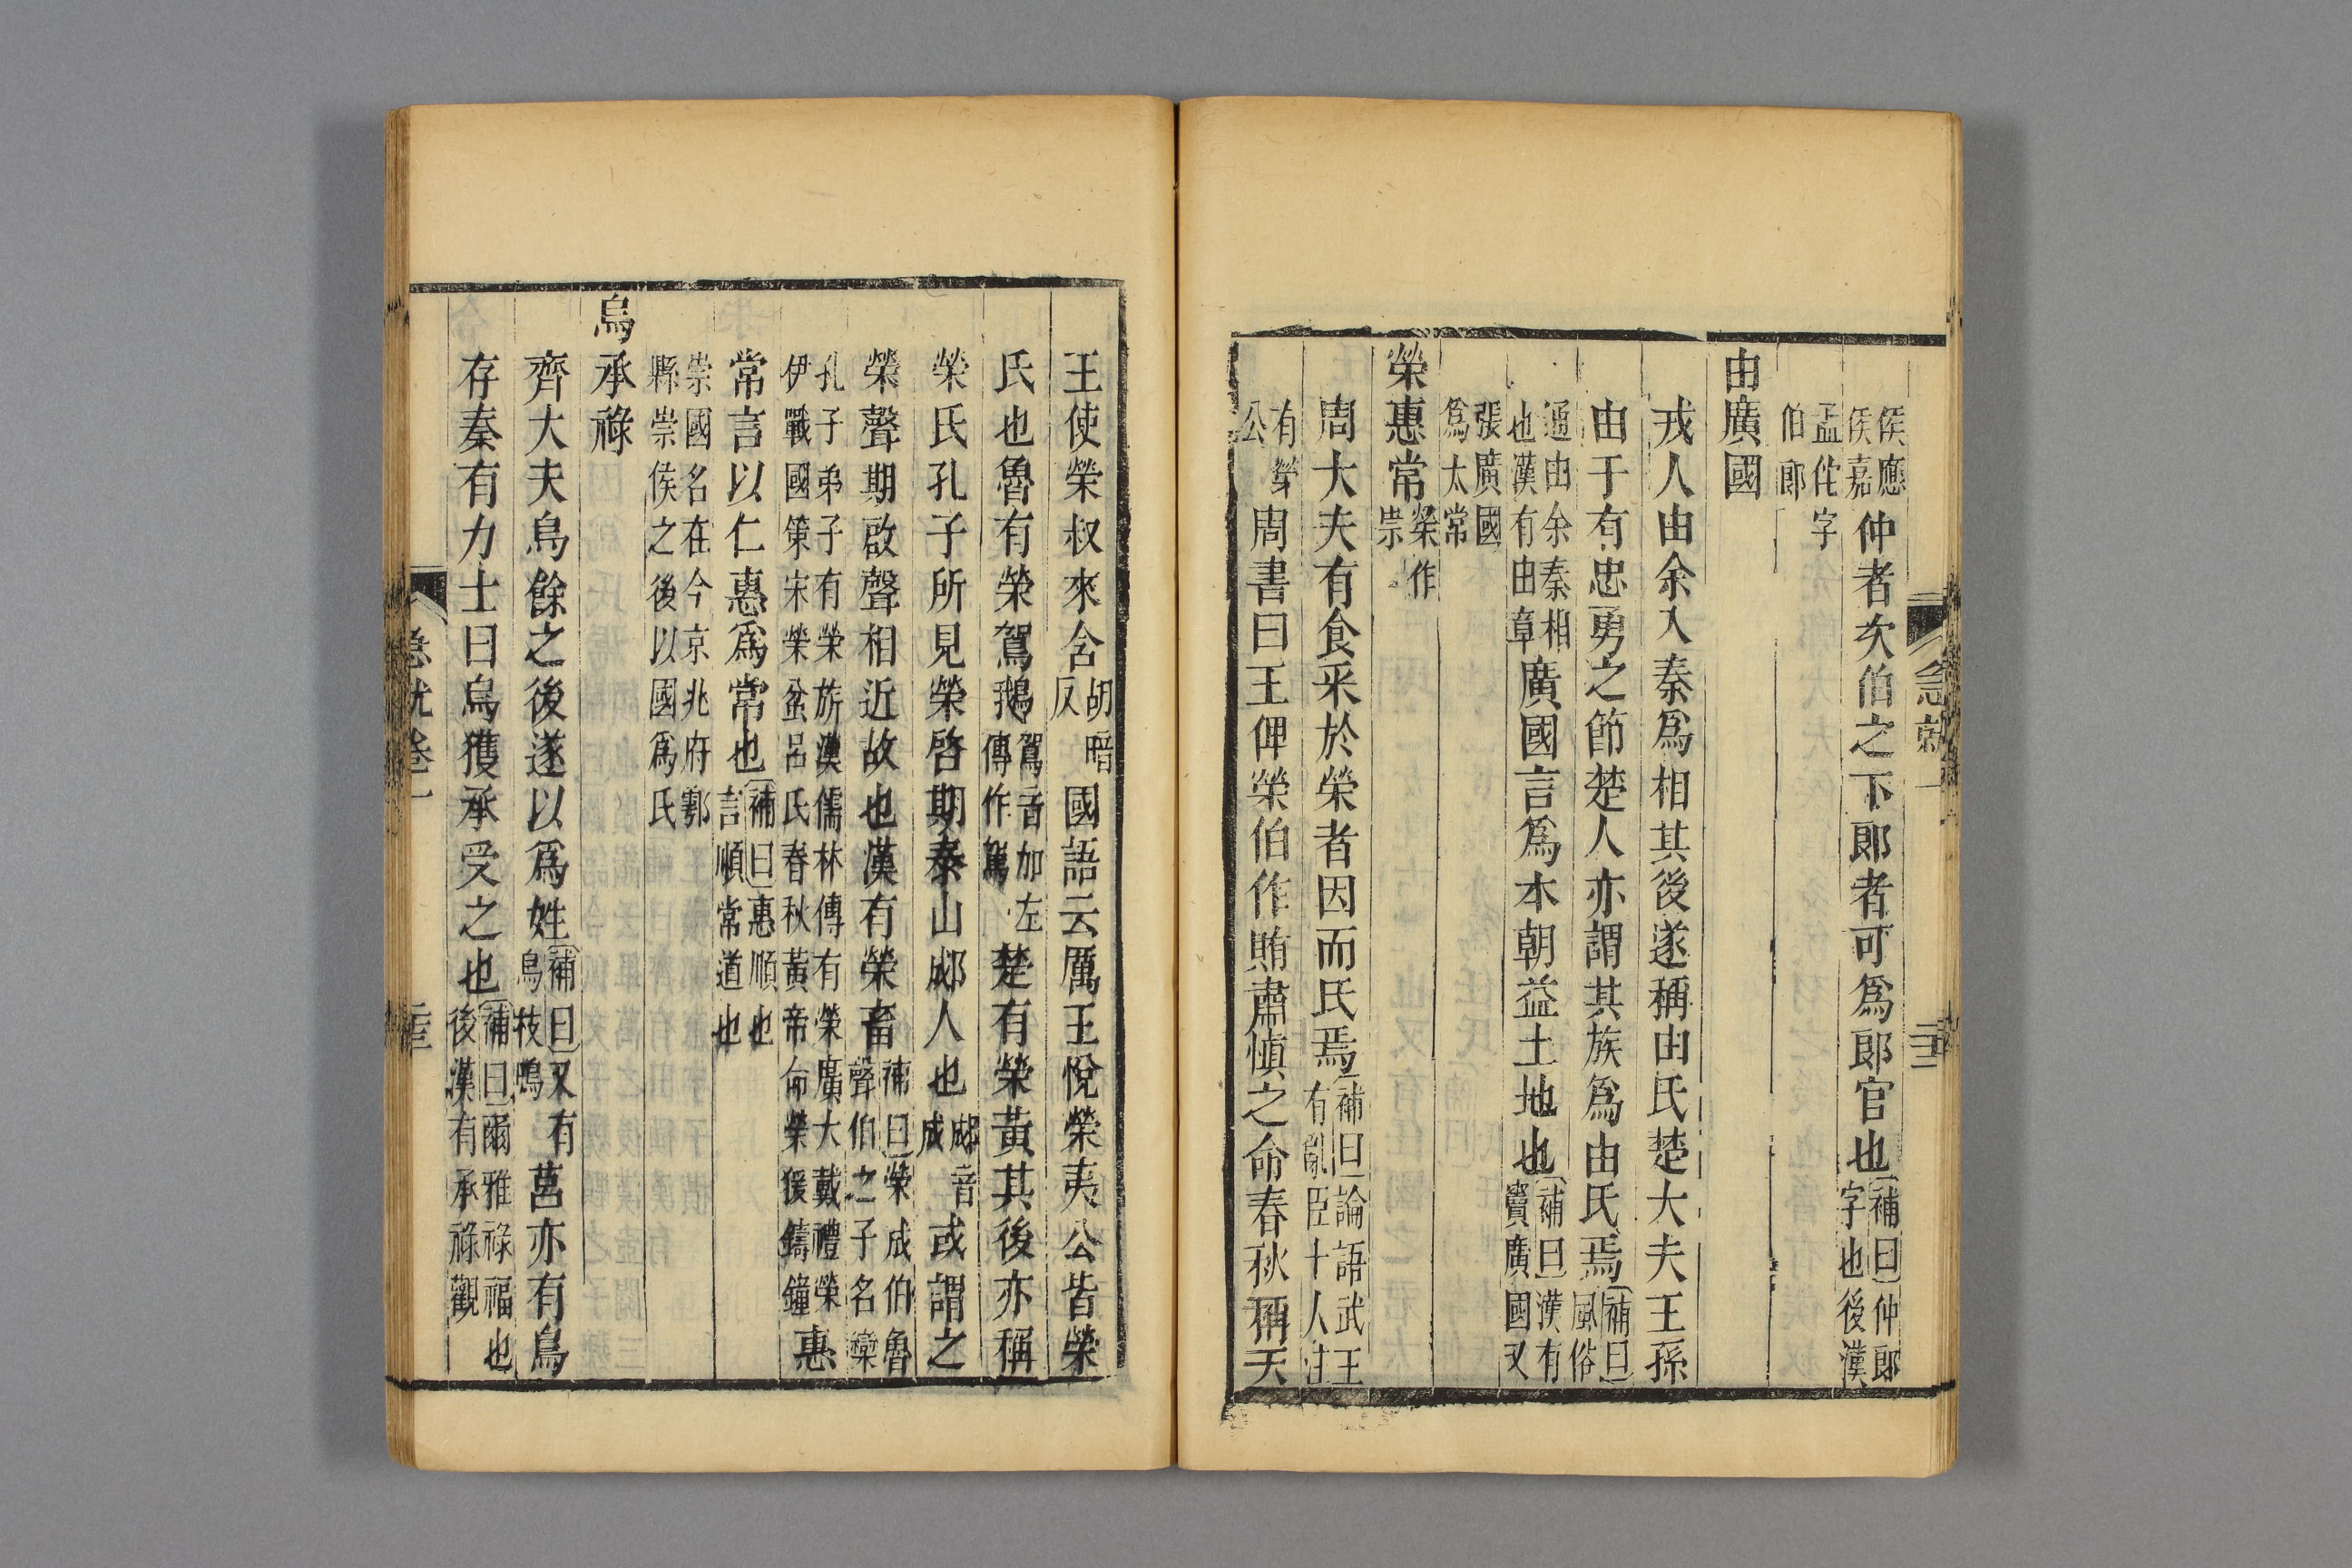 急就一
侯應
侯嘉
仲者次伯之下郞者可爲郞官也
補曰仲郞
字也後漢
孟佗字
伯郞
由廣國
戎人由余入秦爲相其後遂稱由氏楚大夫王孫
由于有忠勇之節楚人亦謂其族爲由氏焉
補曰
風俗
通由余秦相
也漢有由章
廣國言爲本朝益土地也
補曰漢有
竇廣國又
張廣國
爲太常
榮惠常
榮作
祟
周大夫有食采於榮者因而氏焉
補曰論語武王
有亂臣十人注
有榮
公
周書曰王俾榮伯作賄肅愼之命春秋稱天
王使榮叔來含
胡暗
反
國語云厲王悅榮夷公皆榮
氏也魯有榮駕鵝
駕音加左
傳作駕
楚有榮黃其後亦稱
榮氏孔子所見榮啓期泰山郕人也
郕音
成
或謂之
榮聲期啟聲相近故也漢有榮畜
補曰榮成伯魯
聲伯之子名欒
孔子弟子有榮族漢儒林傳有榮廣大戴禮榮
伊戰國策宋榮盆呂氏春秋黃帝命榮猨鑄鐘
惠
常言以仁惠爲常也
補曰惠順也
言順常道也
崇國名在今京兆府鄠
縣崇侯之後以國爲氏
烏承祿
齊大夫烏餘之後遂以爲姓
補曰又有
烏枝鳴
莒亦有烏
存秦有力士曰烏獲承受之也
補曰爾雅祿福也
後漢有承祿觀
急就卷一